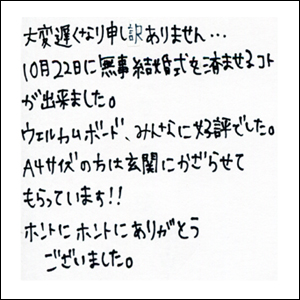 大変遅くなり申し訳ありません…
10月22日に無事結婚式を済ませるコト
が出来ました。
ウェルカムボード、みんなに好評でした。
A4サイズの方は玄関にかざらせて
もらっています!!
ホントにホントにありがとう
ございました。